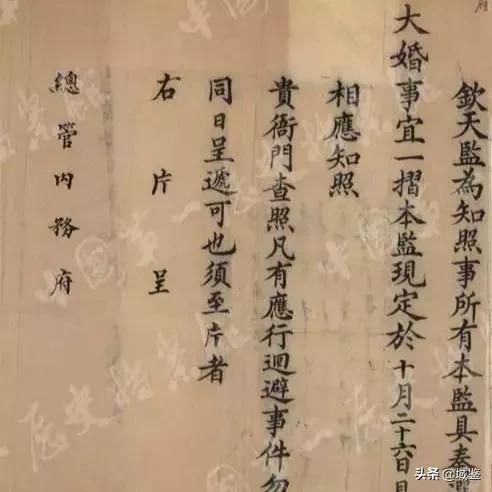 欽天監為知照事所有本監具奏
大婚事宜一摺本監現定於十月二十六日具
相應知照
貴衙門查照凡有應行迴避事件勿
同日呈遞可也須至片者
右片呈
總管內務府
中國第一歷史檔案館
头条 @域鉴